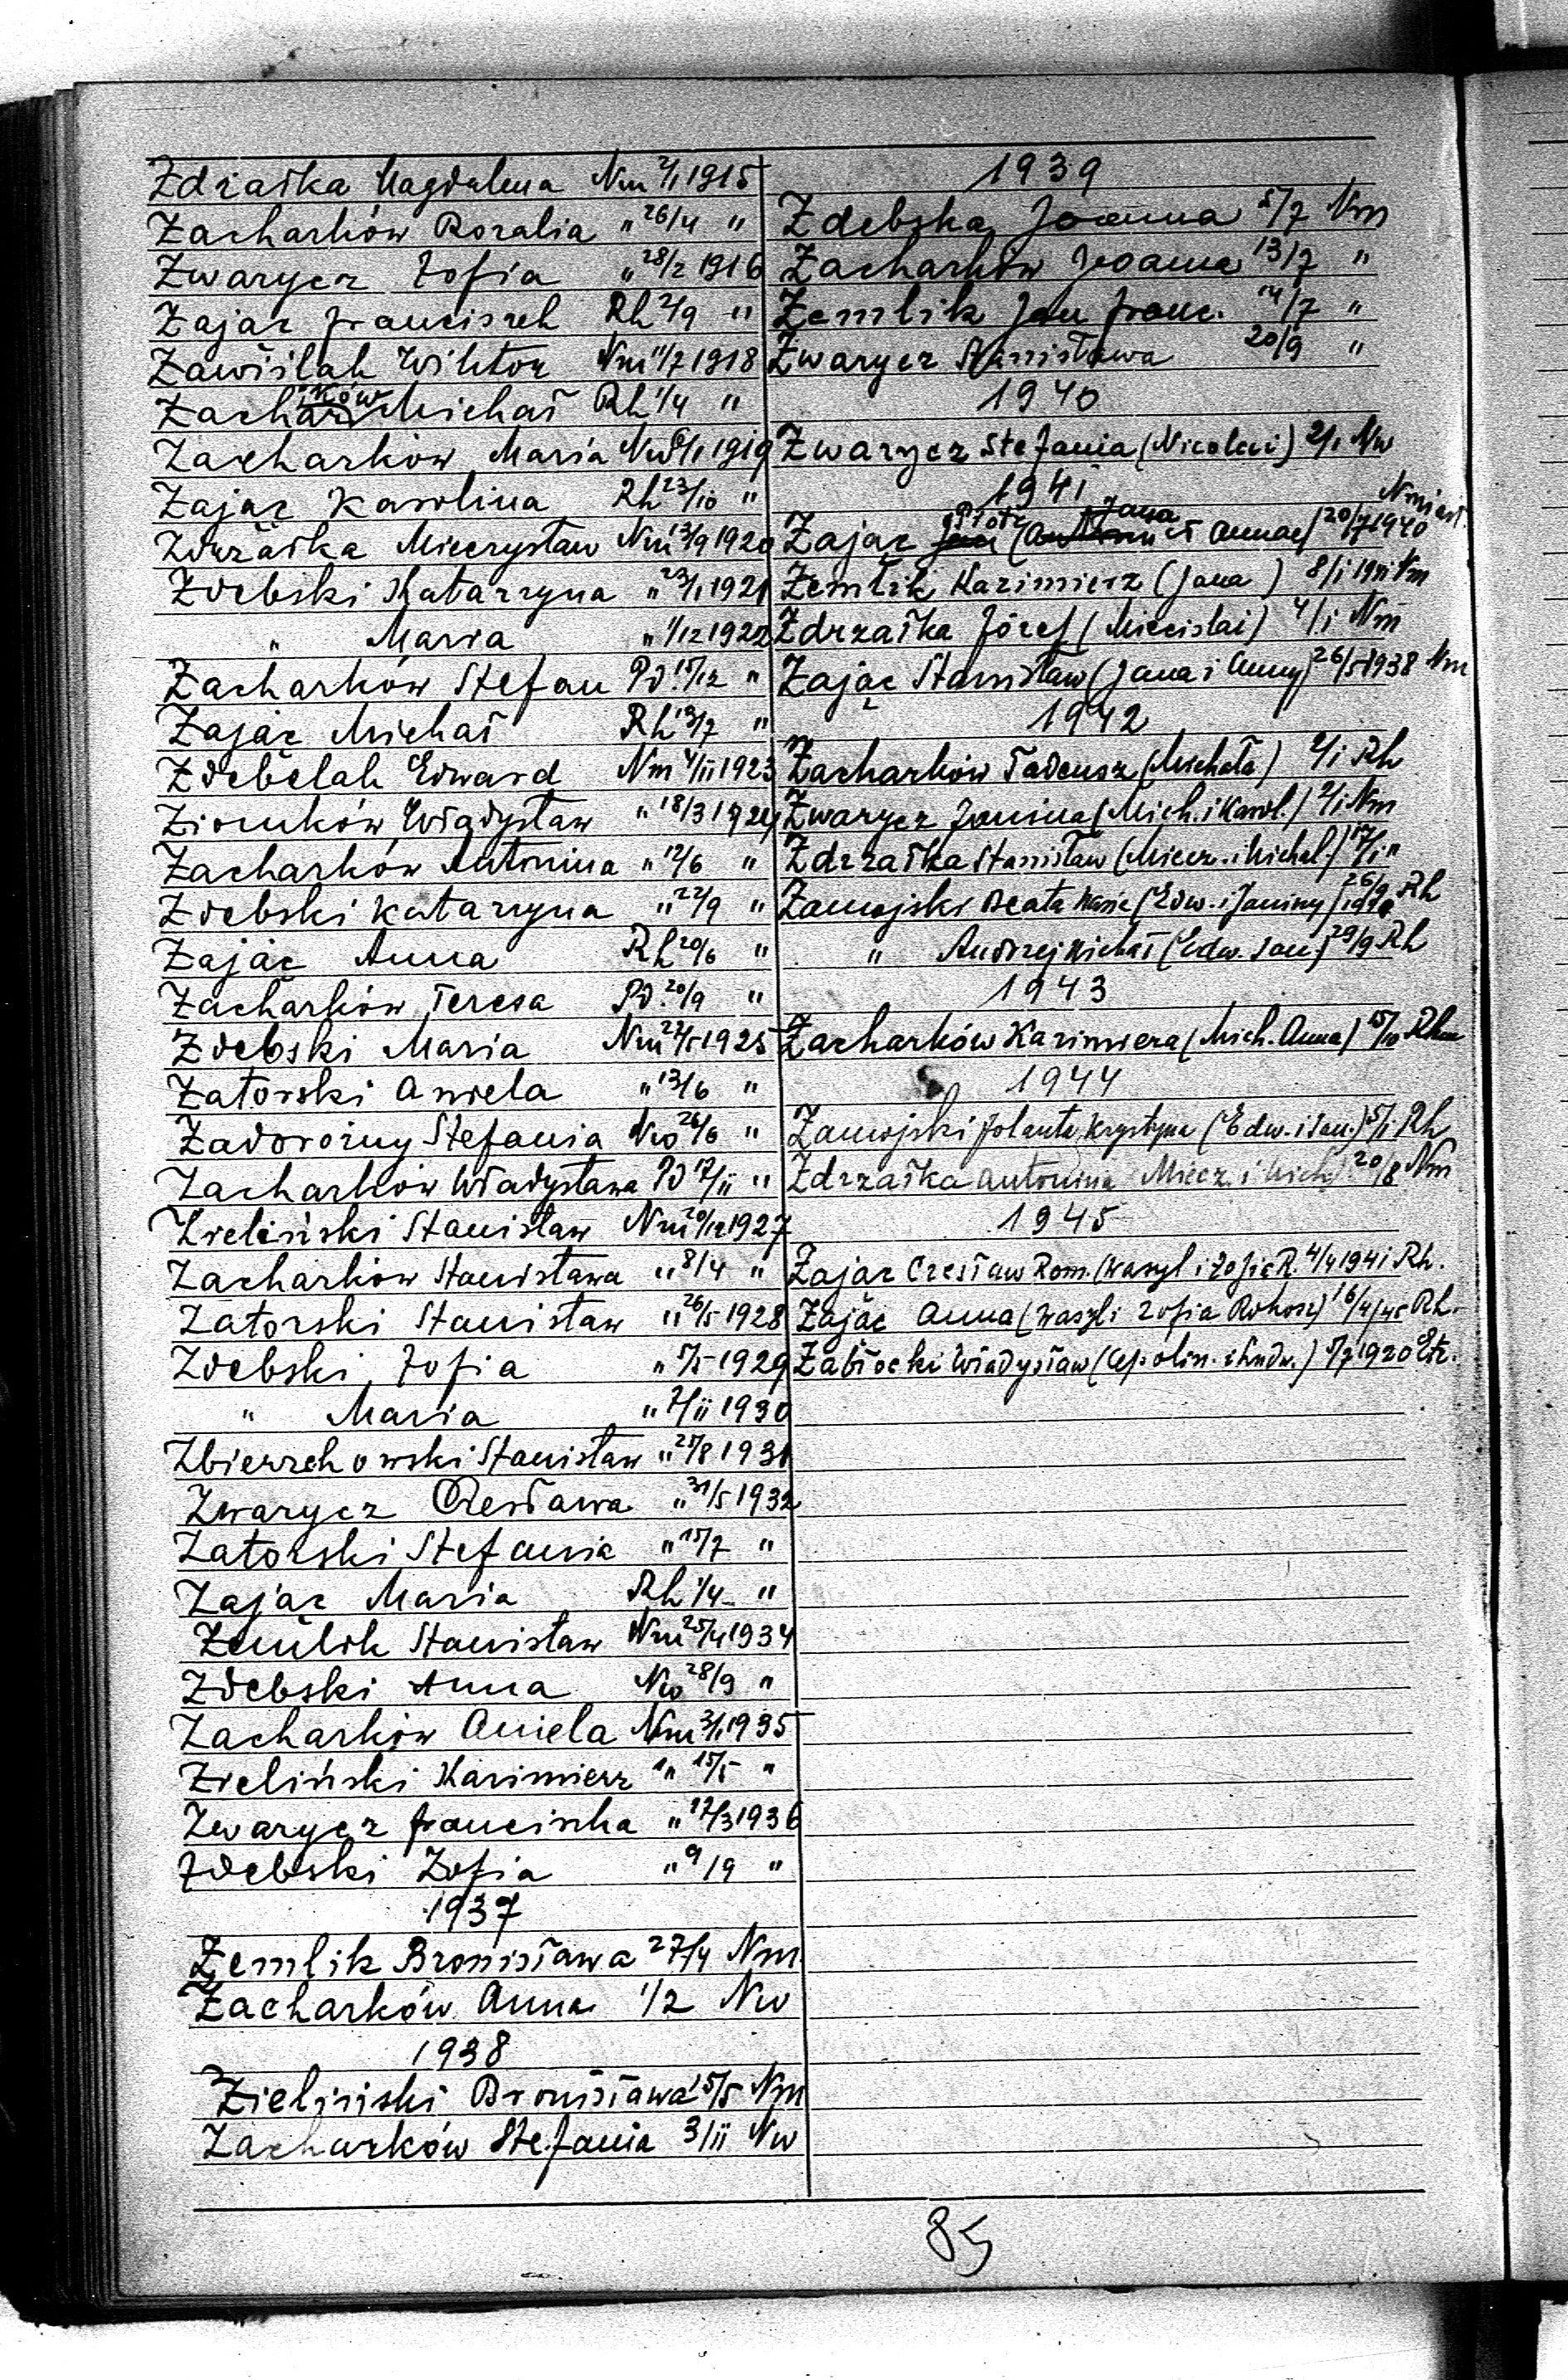 Zdrzałka Magdalena Nm 2/1 1915
Zacharków Rozalia " 26/4 "
Zwarycz Zofia " 28/2 1916
Zając Franciszek Rh 2/9 "
Zawiślak Wiktor Nm 11/7 1918
Zacharków Michał Rh 1/4 "
Zacharków Maria Nw 6/1 1919
Zając Karolina Rh 23/10 "
Zdrzałka Mieczysław Nm 13/9 1920
Zdebski Katarzyna " 23/1 1921
" Maria " 1/12 1922
Zacharków Stefan Pd. 15/12 "
Zając Michał Rh 13/7 "
Zdebelak Edward Nm 4/II 1923
Ziomków Władysław " 18/3 1924
Zacharków Antonina " 12/6 "
Zdebski Katarzyna " 22/9 "
Zając Anna Rh 20/6 "
Zacharków Teresa Pd. 20/9 "
Zdebski Maria Nm 1925
Zatorski Aniela " 13/6 "
Zadorożny Stefania Nw 26/6 "
Zacharków Władysława Pd 17/II "
Zieliński Stanisław Nm 20/12 1927
Zacharków Stanisława " 8/4 "
Zatorski Stanisław " 26/5 1928
Zdebski Zofia " 5/5 1929
" Maria " 7/II 1930
Zbierzchowski Stanisław " 25/8 1931
Zwarycz Czesława " 31/5 1932
Zatorski Stefania " 15/7 "
Zając Maria Rh 1/4 "
Zemlik Stanisław Nm 25/4 1934
Zdebski Anna Nw 28/9 "
Zacharków Aniela Nm 3/1 1935
Zieliński Kazimierz " 15/5 "
Zwarycz Franciszka " 17/3 1936
Zdebski Zofia " 9/9 "
1937
Zemlik Bronisława 27/4 Nm
Zacharków Anna 1/2 Nw
1938
Zieliński Bronisława 15/5 Nm
Zacharków Stefania 3/II Nw
1939
Zdebska Joanna 5/7 Nm
Zacharków Joanna 13/7 "
Zemlik Jan Franc. 14/7 "
Zwarycz Stanisława 20/9 "
1940
Zwarycz Stefania (Nicolai) 2/1 Nw
1941
Zając Piotr (Jana et Annae) 20/7 1940
Zemlik Kazimierz (Jana) 8/I 1941 Nm
Zdrzałka Józef (Miecislai) 4/I Nm
Zając Stanisław (Jana i Anny) 26/5 1938 Nm
1942
Zacharków Tadeusz (Michała) 2/I Rh
Zwarycz Janina (Mich. i Karol.) 2/I Nm
Zdrzałka Stanisław (Miecz. i Michal.) 17/I "
Zamojski Beata Maria (Edw. i Janiny) 26/9 Rh
" Andrzej Michał (Edw. Jan.) 29/9 Rh
1943
Zacharków Kazimiera (Mich. Anna) 15/10
1944
Zamojski Jolanta Krystyna (Edw. i Jan.) 5/I Rh
Zdrzałka Antonina (Miecz. i Mich.) 20/8 Nm
1945
Zając Czesław Rom. (Wasyl i Zofia R. 4/4 1941 Rh.
Zając Anna (Wasyl i Zofia Rokosz) 16/4/45 Rh.
Zabłocki Władysław (Apolin. i Ludw.) 5/7 1920
85